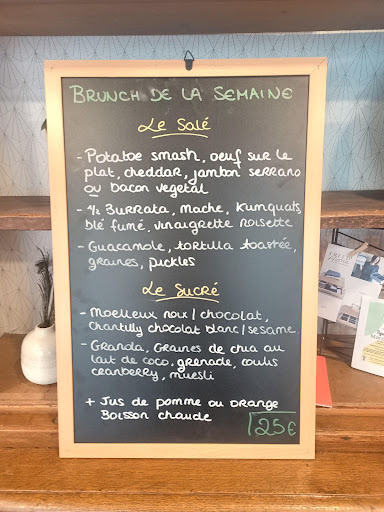 BRUNCH DE LA SEMAINE
Le Salé
- Potatoe smash, oeuf sur le
plat, cheddar, jambon serrano
ou bacon vegetal
- ½ Burrata, mache, Kumquats,
blé fumé, vinaigrette noisette
- Guacamole, tortilla toastée,
graines, pickles
Le Sucré
- Moelleux noix / chocolat,
chantilly chocolat blanc / sesame
- Granola, Graines de chia au
lait de coco, grenade, coulis
cranberry, muesli
+ Jus de pomme ou orange
Boisson chaude
25€